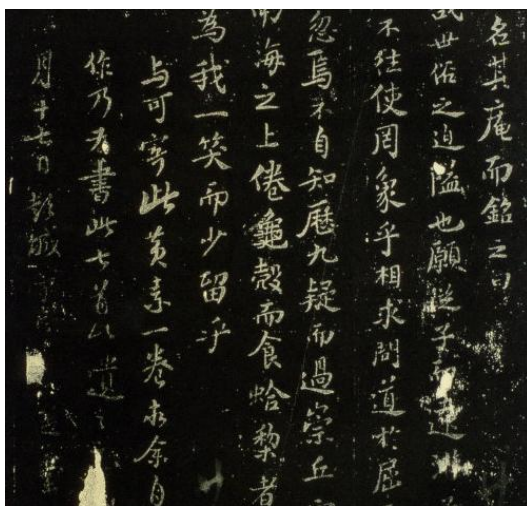 名其庵而銘之曰
哉世俗之迫隘也願從子而遠遊
不往使罔象乎相求問道於屈
忽焉不自知歷九疑而過崇丘
南海之上倦龜殼而食蛤棃者
為我一笑而少留乎
与可寄此黃素一卷求余自
作乃為書此七首以遺之
月廿七日彭城